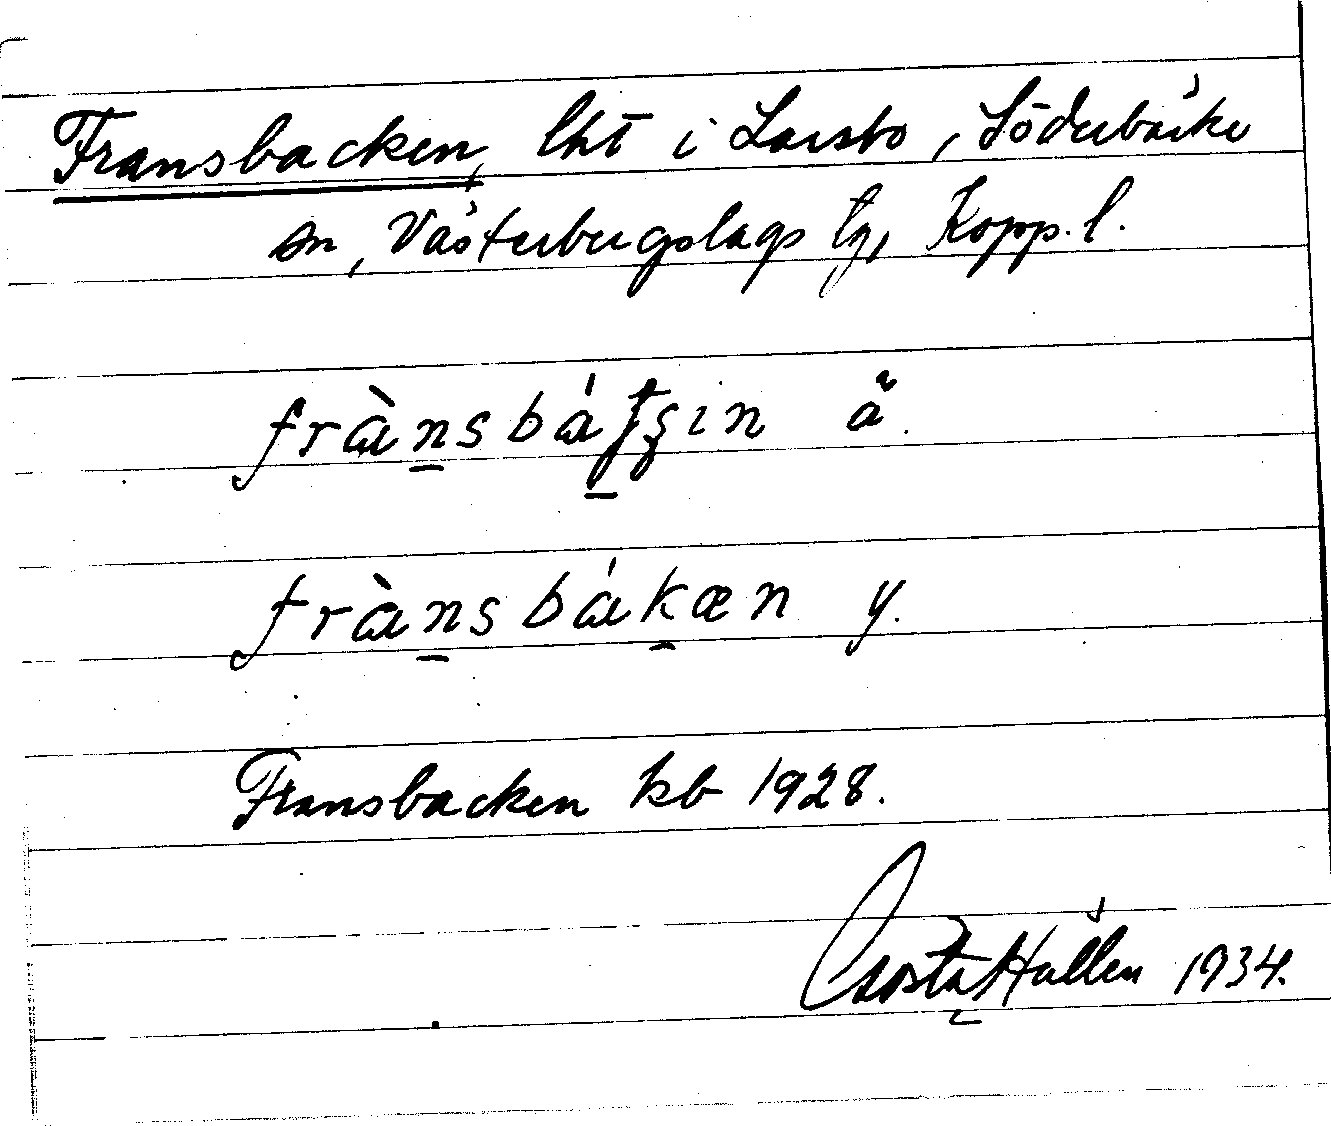 Fransbacken, lht i Larsbo, Söderbärke
sn, Västerbergslags tg, Kopp. l.
frànsbáʈʂin ä.
frànsbákæn y.
Fransbacken kb 1928.
Gösta Hallén 1934.